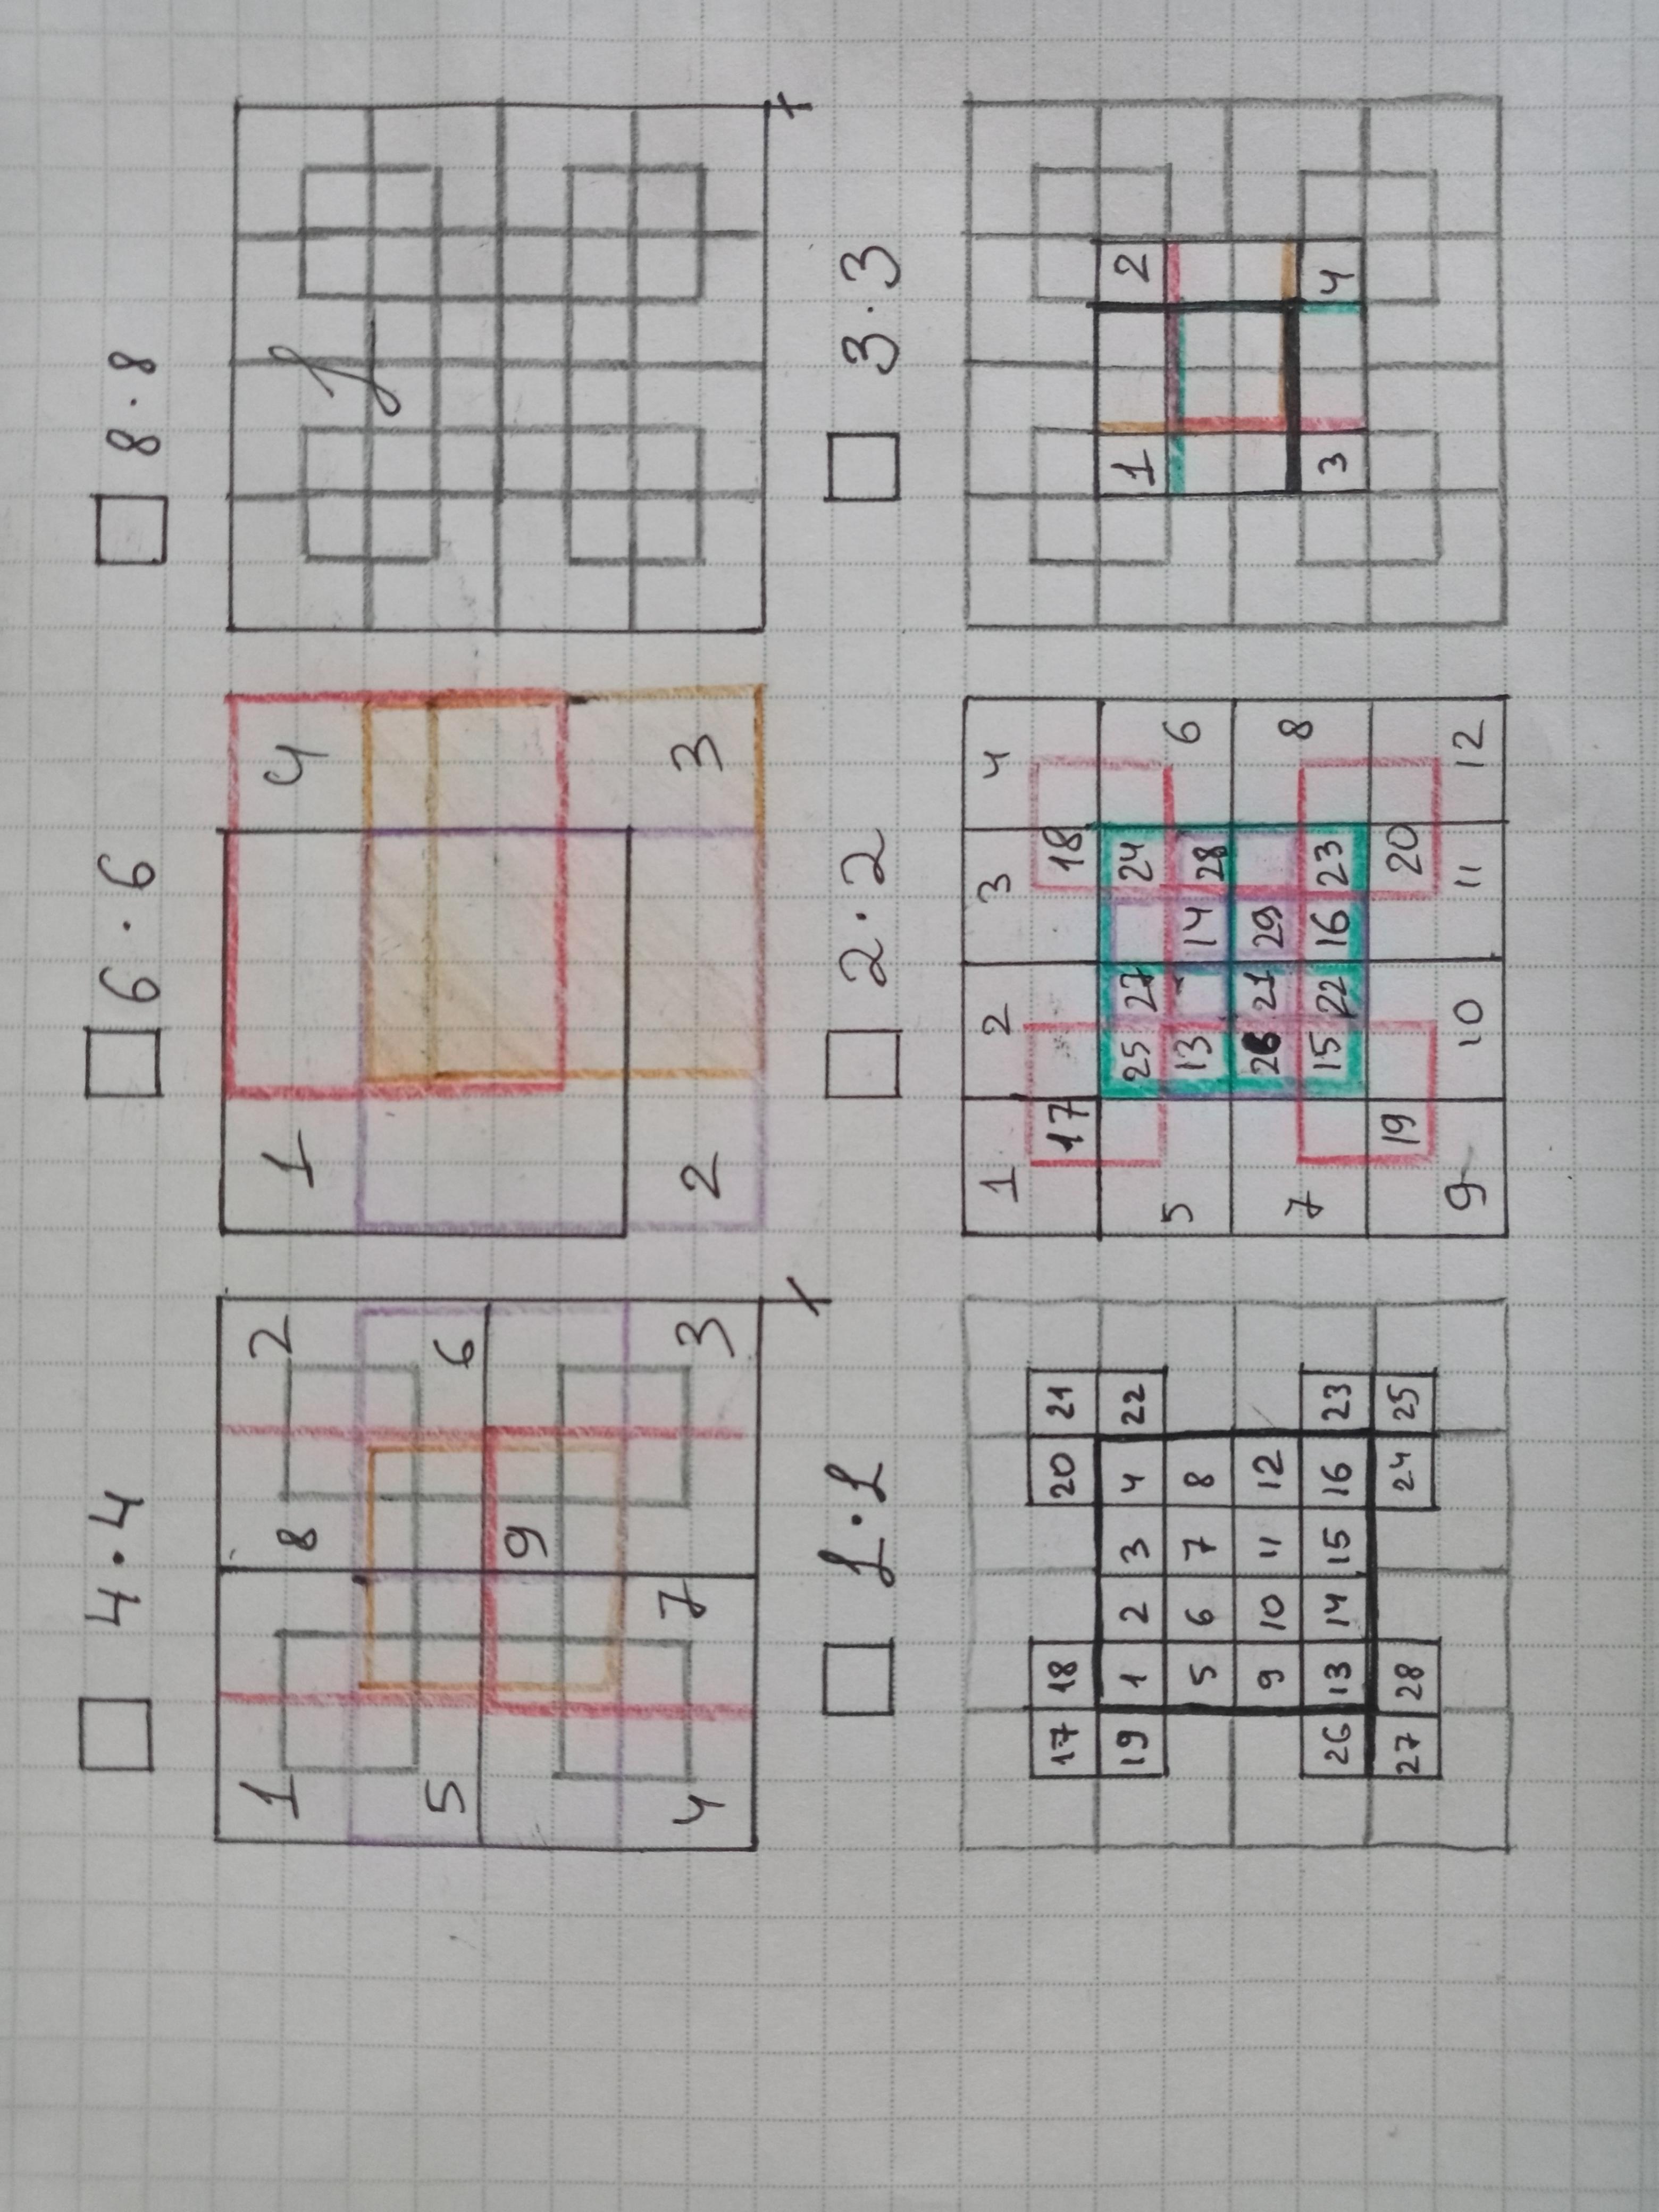 □ 4·4
1 2
8
5 6
9
4 7 3
□ 6·6
1 4
2 3
□ 8·8
1
□ 1·1
17 18 20 21
19 1 2 3 4 22
5 6 7 8
9 10 11 12
26 13 14 15 16 23
27 28 24 25
□ 2·2
1 2 3 4
17 18
25 27 24
5 13 14 28 6
7 26 21 29 8
15 22 16 23
19 20
9 10 11 12
□ 3·3
1 2
3 4